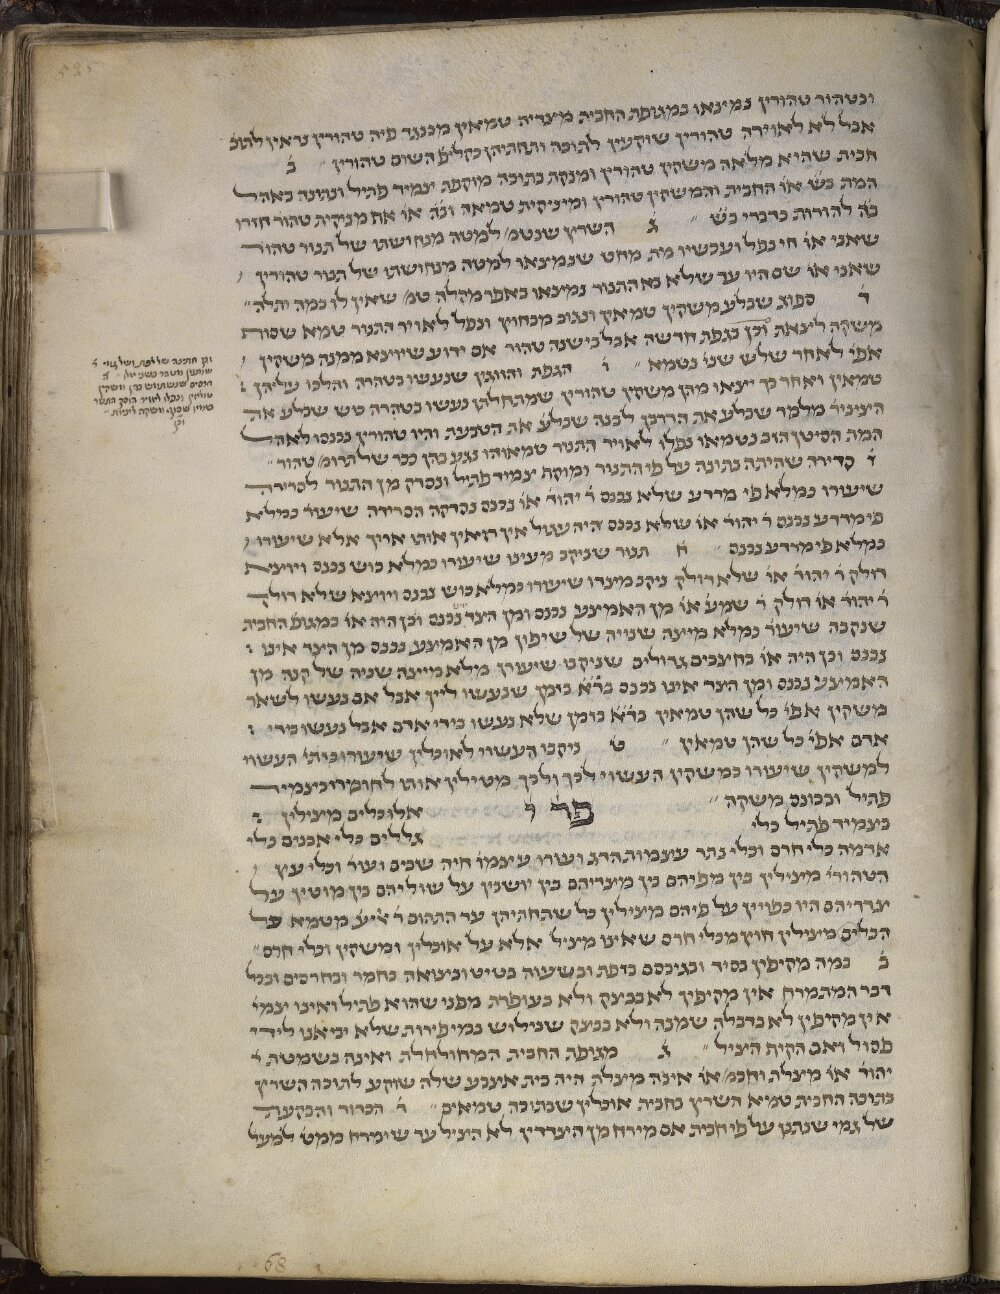 ובטהור טהורין נמצאו במגופת החבית מצדיה טמאין מכנגד פיה טהורין נראין לתוכ
אבל לא לאוירה טהורין שוקעין לתוכה ותחתיהן כקליפ השום טהורין ״ ב׳
חבית שהיא מלאה משקין טהורין ומנקת בתוכה מוקפת צמיד פתיל ונתונה באהל
המת בש׳ או׳ החבית והמשקין טהורין ומיניקית טמיאה ובה׳ או׳ אף מניקית טהור׳ חזרו
בה׳ להורות כדברי בש׳ ״ ג׳ השרץ שנמצ׳ למטה מנחושתו של תנור טהור
שאני או׳ חי נפל ועכשיו מת מחט שנמצאו למטה מנחושתו של תנור טהורין
שאני או׳ שם היו עד שלא בא התנור נמצאו באפר מקלה טמ׳ שאין לו במה יתלה ״
ד׳ ספוג שבלע משקין טמאין ונגוב מבחוץ ונפל לאויר התנור טמא שסוף
משקה ליצאת וכן בגפת חדשה אבל בישנה טהור אם ידוע שיוצא ממנה משקין
אפי׳ לאחר שלש שני׳ נטמא ״ ו׳ הגפת והזוגין שנעשו בטהרה והלכו עליהן
טמאין ואחר כך יצאו מהן משקין טהורין שמתחלתן נעשו בטהרה כוש שבלע את
הצינור׳ מלמד שבלע את הדרבן לבנה שבלעה את הטבעת והיו טהורין נכנסו לאהל
המת הסיטן הזב נטמאו נפלו לאויר התנור טמאוהו נגע בהן ככר של תרומ׳ טהור ״
ז׳ קדירה שהיתה נתונה על פי התנור ומוקפת צמיד פתיל ונסדק מן התנור לקדירה
שיעורו כמלא פי מרדע שלא נכנס ר׳ יהוד׳ או׳ נכנס נסדקה הסרידה שיעור׳ כמלא
פי מרדע נכנס ר׳ יהוד׳ או׳ שלא נכנס היה עגול אין רואין אותו ארוך אלא שיעורו
כמלא פי מרדע נכנס ״ ח׳ תנור שניקב מעינו שיעורו כמלא כוש נכנס ויוצא
דולק ר׳ יהוד׳ או׳ שלא דולק ניקב מיצדו שיעורו כמלא כוש נכנס ויוצא שלא דולק
ר׳ יהוד׳ או׳ דולק ר׳ שמע׳ או׳ מן האמצע נכנס ומן הצד נכנס וכן היה או׳ במגופ׳ החבית
שנקבה שיעור׳ כמלא מיצה שנייה של שיפון מן האמצע נכנס מן הצד אינו
נכנס וכן היה או׳ בחצבים גדולים שניקבו שיעורן מלא מייצה שניה של קנה מן
האמצע נכנס ומן הצד אינו נכנס במ׳ ד׳ א׳ בזמן שנעשו ליין אבל אם נעשו לשאר
משקין אפי׳ כל שהן טמאין במ׳ ד׳ א׳ בזמן שלא נעשו בידי אדם אבל נעשו בידי
אדם אפי׳ כל שהן טמאין ״ ט׳ ניקבו העשוי לאוכלין שיעורו בזיתי׳ העשוי
למשקין שיעורו במשקין העשוי לכך ולכך מטילין אותו לחומרו בצמיד
פתיל ובכונס משקה ״ פר׳ י׳ אלו כלים מצילין
בצמיד פתיל כלי גללים כלי אבנים כלי
אדמה כלי חרס וכלי נתר עצמות הדג ועורו עצמו׳ חיה שבים ועור׳ וכלי עץ
הטהורי׳ מצילין בין מפיהם בין מצדיהם בין יושבין על שוליהם בין מוטין על
צדדיהם היו כפויין על פיהם מצילין כל שתחתיהן עד התהום ר׳ אליע׳ מטמא על
הכלים מצילין חוץ מכלי חרס שאינו מציל אלא על אוכלין ומשקין וכלי חרס ״
ב׳ במה מקיפין בסיד ובגפסס בזפת ובשעוה בטיט ובצואה בחמר ובחרסים ובכל
דבר המתמרח אין מקיפין לא בבעץ ולא בעופרת מפני שהוא פתיל ואינו צמי׳
אין מקיפין לא בדבלה שמנה ולא בבצק שנילוש במי פירות שלא יביאנו לידי
פסול ואם הקיף הציל ״ ג׳ מגופת החבית המחולחלת ואינה נשמטת ר׳
יהוד׳ או׳ מצלת וחכמ׳ או׳ אינה מצלת היה בית אצבע שלה שוקע לתוכה השרץ
בתוכה החבית טמיא השרץ בחבית אוכלין שבתוכה טמאים ״ ד׳ הכדור והפקעת
של גמי שנתנן על פי חבית אם מירח מן הצדדין לא הציל עד שימרח ממט׳ למעל